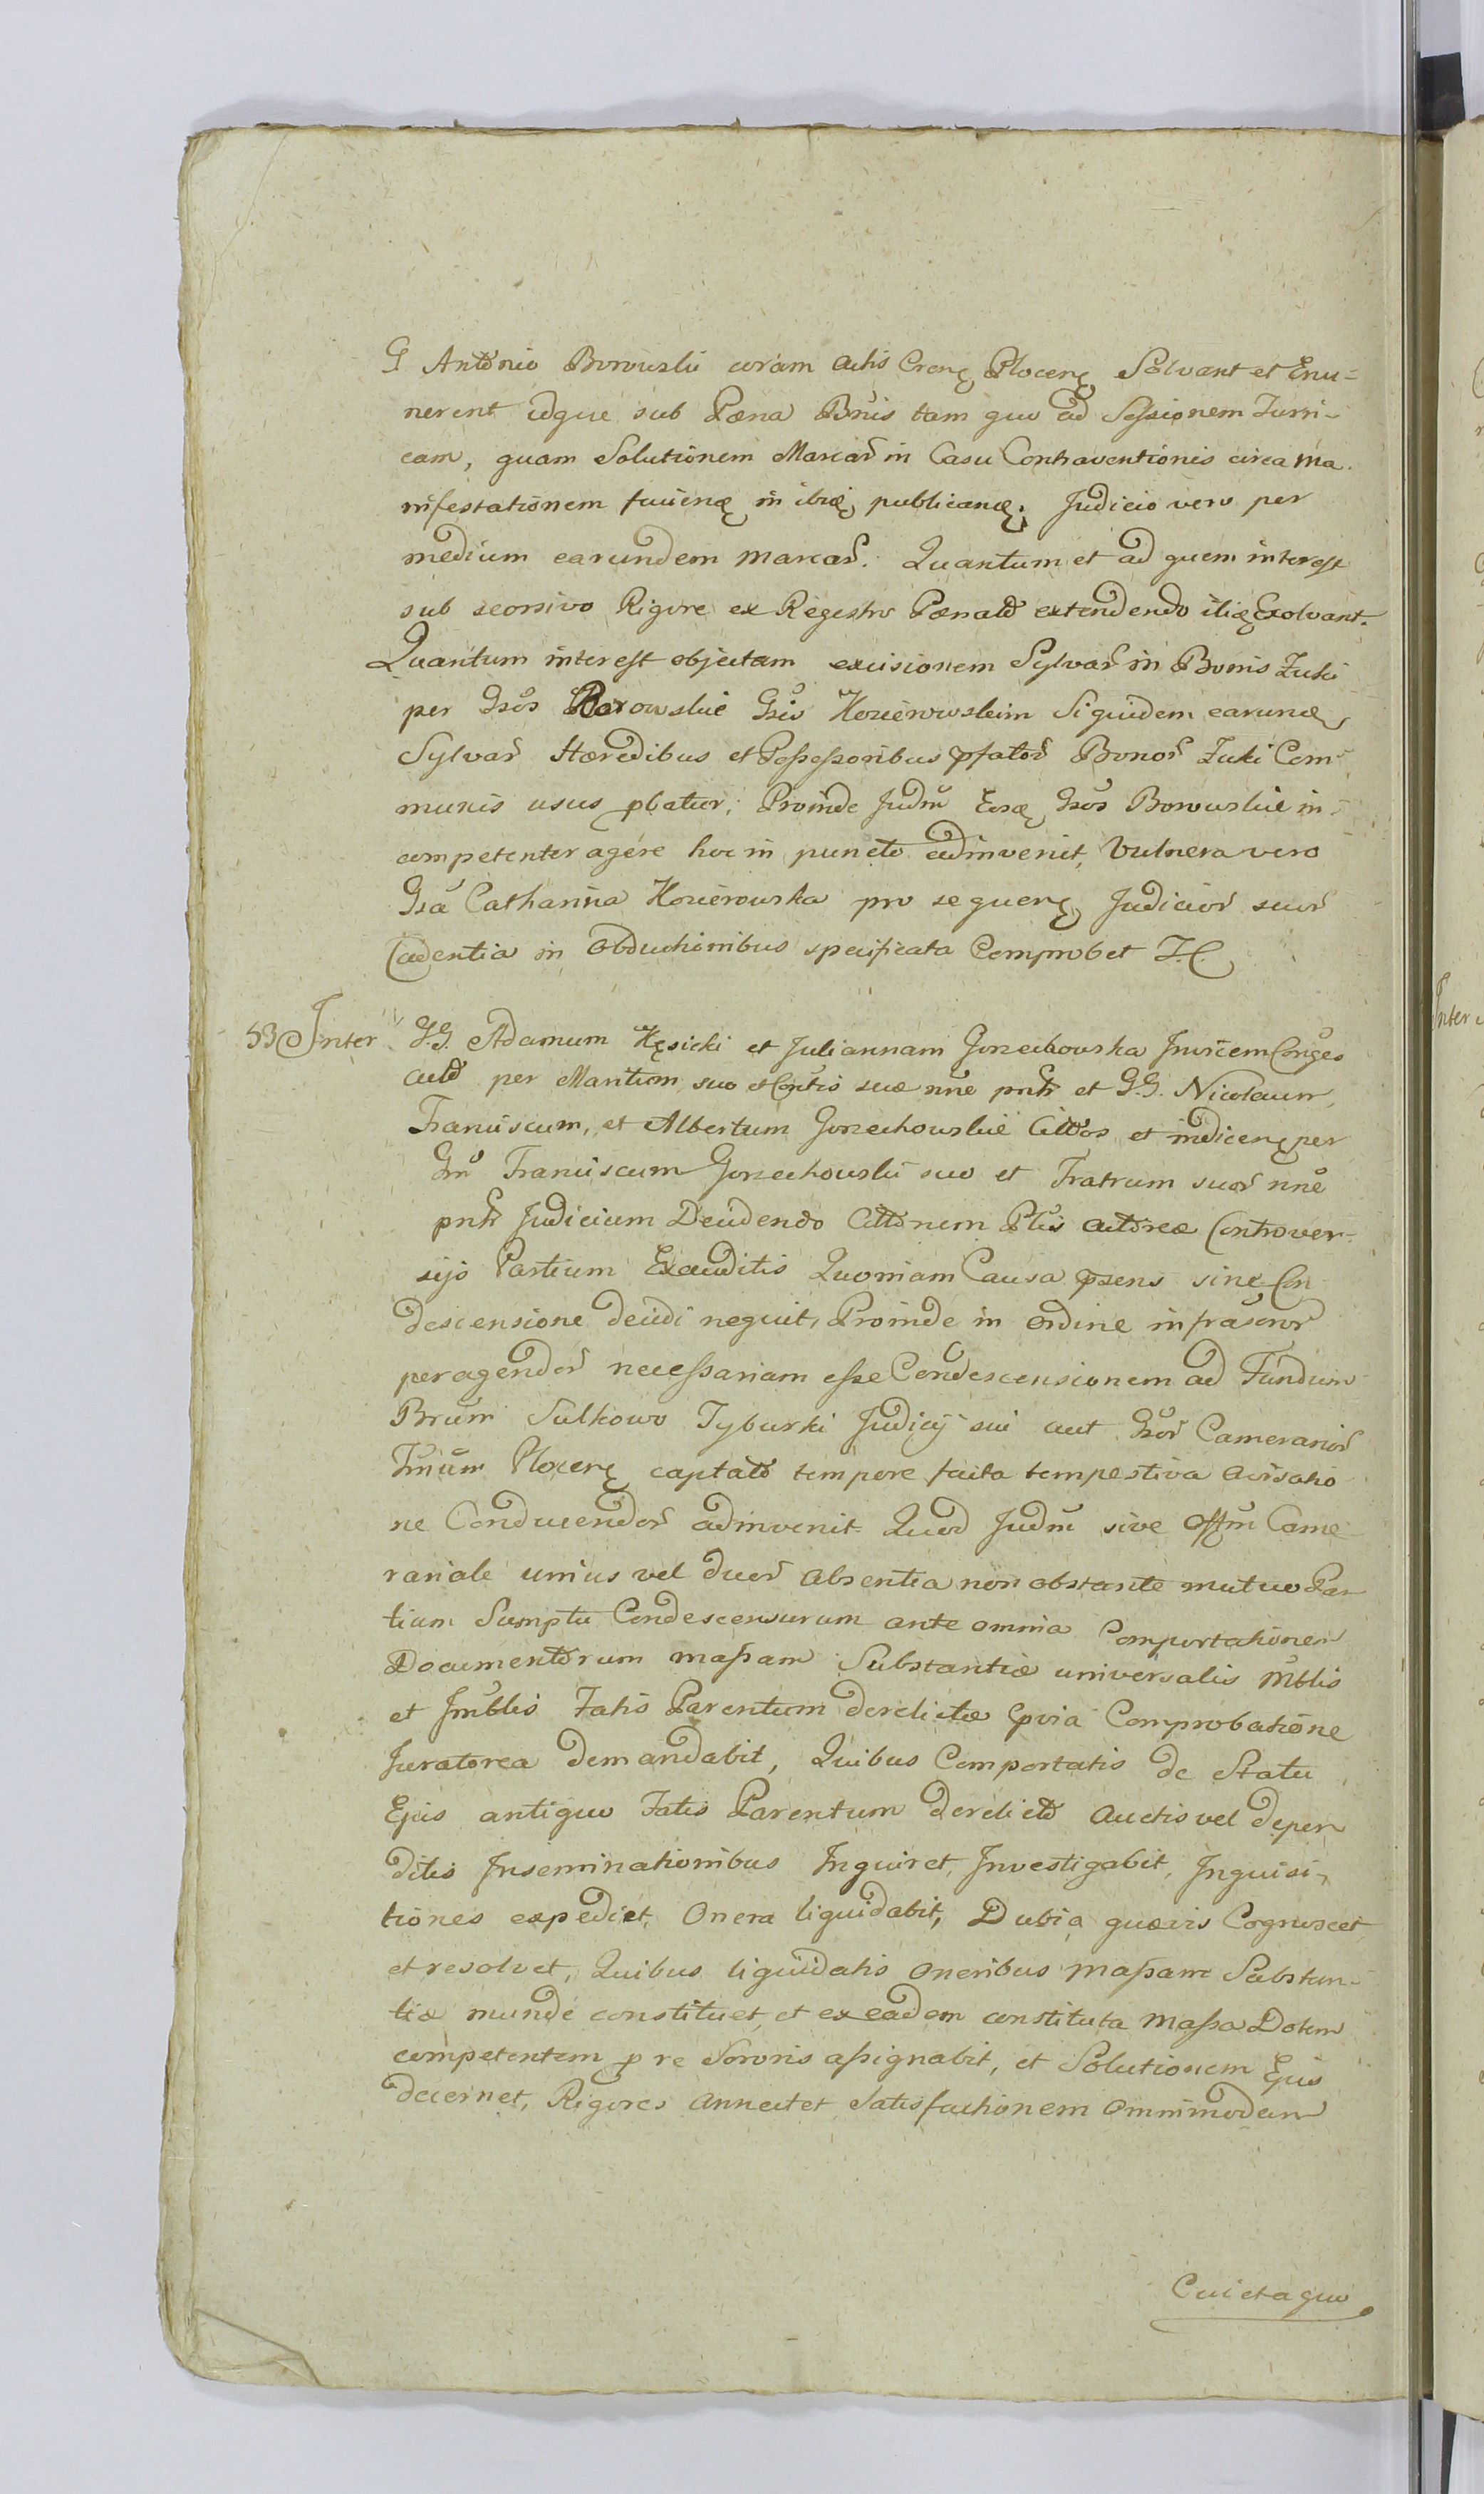 G Antonio Borowski coram actis Crens Plocens Solvant et Enu-
nerent idque sub Pæna Bnis tam quo ad Sessionem Turri-
cam, quam Solutionem Marcar in Casu Contraventionis circa Ma-
nifestationem faciend in ibid publicand. Judicio vero per
medium earundem Marcar. Quantum et ad quem interest
sub seorsivo Rigore ex Regestro Pænali extendendo itid Exolvant.
Quantum interest objectam excisionem Sylvar in Bonis Zuki
per Gsos Borowskie Gsis Kozierowskim Siquidem earund
Sylvar Hæredibus et Possessoribus pfator Bonor Zuki Com-
munis usus pbatur; Proinde Judm Eosd Gsos Borowskie in-
competenter agere hoc in puncto adinvenit, Vulnera vero
Gsa Catharina Kozierowska pro sequens Judicior suor
Cadentia in Obductionibus specificata Comprobet I.C.
53 Inter G.G. Adamum Kęsicki et Juliannam Gorzechowska Invicem Conges
act per Maritum suo et Cortis suæ nne pnte et G.G. Nicolaum,
Franciscum, et Albertum Gorzechowskie Cittos et indicens per
Gm Franciscum Gorzechowski suo et Fratrum suor nne
pnte Judicium Decidendo Cittonem Ptis actoreæ Controver-
sijs Partium Exauditis Quoniam Causa psens sine Con
descensione decidi nequit, Proinde in ordine infrascror
peragendor necessariam esse Condescensionem ad Fundum
Brum Sulkowo Tyburki Judicij sui aut Gsor Camerarior
Trum Plocens captato tempore facta tempestiva avisatio
ne Conducendor adinvenit. Quod Judm sive Offm Came
rariale unius vel duor absentia non obstante mutuo Par
tium Sumptu Condescensurum ante omnia Comportationem
Documentorum massam Substantiæ universalis Mblis
et Imblis Fatis Parentum derelictæ pvia Comprobatione
Juratorea demandabit, Quibus Comportatis de Statu
Ejus antiquo Fatis Parentum derelicto auctis vel deper
ditis Inseminationibus Inquiret, Investigabit, Inquisi-
tiones expediet, Onera liquidabit, Dubia quævis Cognoscet
et resolvet, Quibus liquidatis oneribus massam Substan-
tiæ munde constituet, et ex eadem constituta Massa Dotem
competentem p re Sororis assignabit, et Solutionem Ejus
decernet, Rigores annectet Satisfactionem omnimodam
Cui et a quo